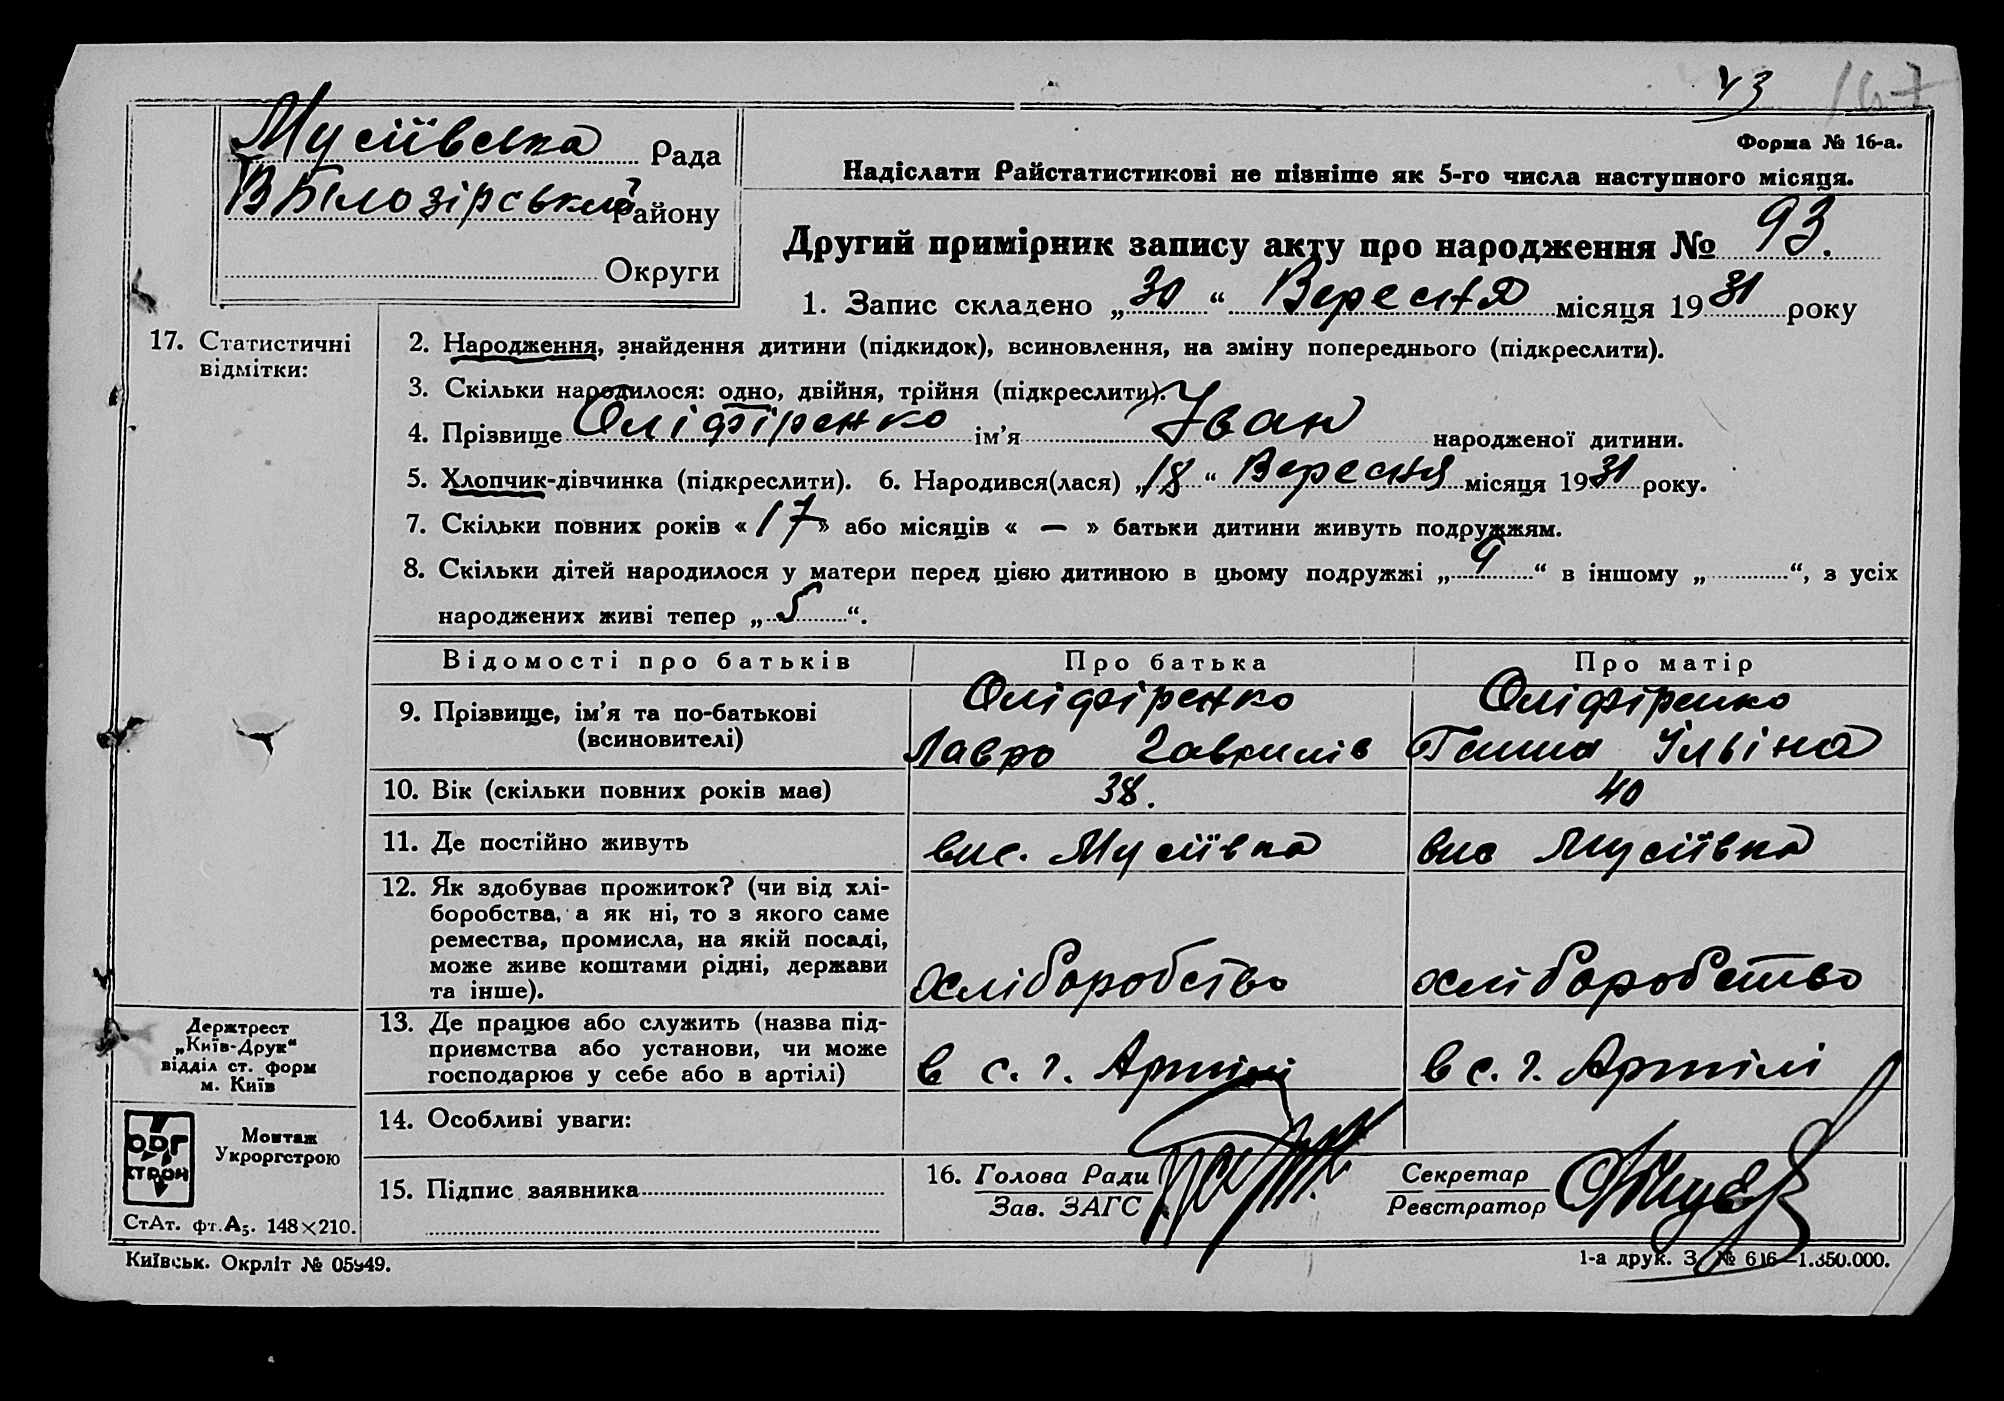 43 167
Форма № 16-а.
Мусіївська Рада
В Білозірський Району
Округи
Надіслати Райстатистикові не пізніше як 5-го числа наступного місяця.
Другий примірник запису акту про народження № 93.
1. Запис складено „30“ Вересня місяця 1931 року
17. Статистичні
відмітки:
2. Народження, знайдення дитини (підкидок), всиновлення, на зміну попереднього (підкреслити).
3. Скільки народилося: одно, двійня, трійня (підкреслити).
4. Прізвище Оліфіренко ім’я Іван народженої дитини.
5. Хлопчик-дівчинка (підкреслити). 6. Народився(лася) „18“ Вересня місяця 1931 року.
7. Скільки повних років « 17 » або місяців « — » батьки дитини живуть подружжям.
8. Скільки дітей народилося у матери перед цією дитиною в цьому подружжі „ “ в іншому „ “, з усіх
народжених живі тепер „5“.
Відомості про батьків Про батька Про матір
9. Прізвище, ім’я та по-батькові
(всиновителі)
Оліфіренко
Лавро Гаврилів
Оліфіренко
Ганна Ільіна
10. Вік (скільки повних років має) 38. 40
11. Де постійно живуть вис. Мусіївка вис Мусіївка
12. Як здобуває прожиток? (чи від хлі-
боробства, а як ні, то з якого саме
ремества, промисла, на якій посаді,
може живе коштами рідні, держави
та інше).
хліборобство хліборобство
13. Де працює або служить (назва під-
приємства або установи, чи може
господарює у себе або в артілі)
в с. г. Артілі в с. г. Артілі
14. Особливі уваги:
15. Підпис заявника
16. Голова Ради
Зав. ЗАГС
Секретар
Реєстратор
Держтрест
„Київ-Друк“
відділ ст. форм
м. Київ
ОРГ
СТРОЙ
Монтаж
Укроргстрою
СтАт. фт. А₅. 148×210.
Київськ. Окрліт № 05949.
1-а друк. З. № 616—1.350.000.